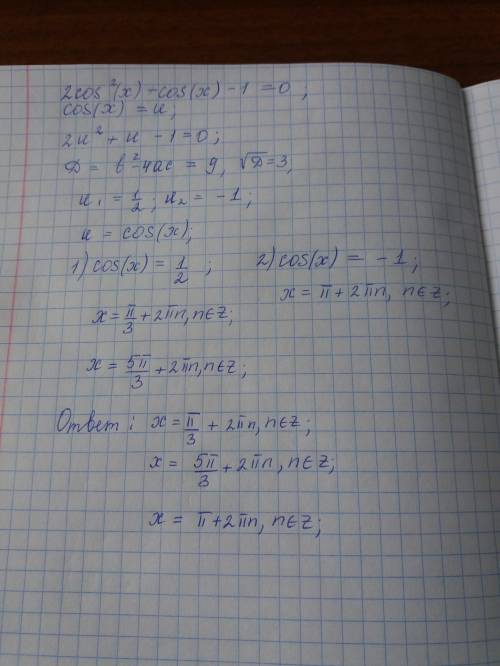 2cos²(x) - cos(x) - 1 = 0 ;
cos(x) = u;
2u² + u - 1 = 0;
D = в² - 4ас = 9, √D = 3,
u₁ = 1/2 ; u₂ = -1;
u = cos(x);
1) cos(x) = 1/2 ; 2) cos(x) = -1;
x = π + 2πn, n∈Z;
x = π/3 + 2πn, n∈Z;
x = 5π/3 + 2πn, n∈Z;
Ответ: x = π/3 + 2πn, n∈Z;
x = 5π/3 + 2πn, n∈Z;
x = π + 2πn, n∈Z;